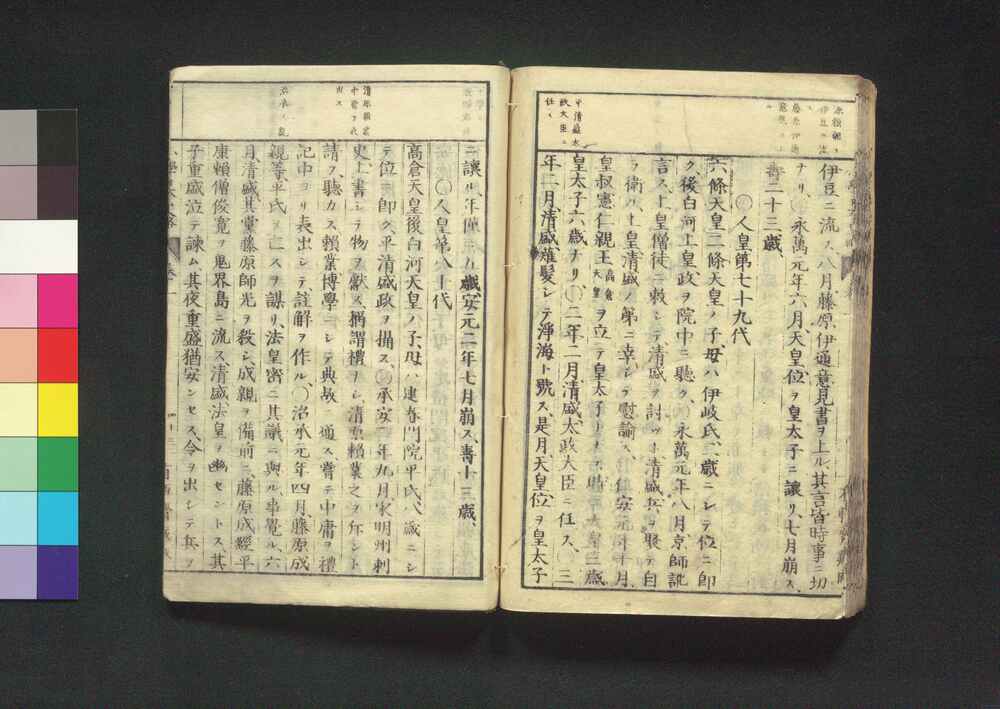 伊豆ニ流ス、八月藤原伊通意見書ヲ上ル其言皆時事ニ切
ナリ、永萬元年六月天皇位ヲ皇太子ニ讓リ、七月崩ス、
壽二十三歳、
〇人皇第七十九代
六條天皇二條天皇ノ子、母ハ伊岐氏、二歳ニシテ位ニ即
ク後白河上皇政ヲ院中ニ聽ク、永萬元年八月京師訛
言ス上皇僧徒ニ敕シテ清盛ヲ討ツト清盛兵ヲ聚テ自
ラ衛ル上皇清盛ノ第ニ幸シテ慰諭ス、仁安元年十月
皇叔憲仁親王高倉天皇ヲ立テ皇太子トナス時
皇太子六歳ナリ、〇二年二月清盛太政大臣ニ任ス、三
年二月、清盛薙髮シテ淨海ト號ス、是月天皇位ヲ皇太子
平清盛太
政大臣ニ
任ス
ニ讓ル、年僅五歳、安元二年七月崩ス、壽十三歳、
〇人皇第八十代
高倉天皇後白河天皇ノ子、母ハ建春門院平氏、八歳ニシ
テ位ニ即ク、平清盛政ヲ攝ス、承安二年九月宋明州刺
史上書シテ物ヲ獻ス、稱謂禮ナシ清原賴業之ヲ斥ント
請フ、聽カス賴業博學ニシテ典故ニ通ス嘗テ中庸ヲ禮
記中ヨリ表出シテ、註解ヲ作ル、〇治承元年四月、藤原成
親等平氏ヲ亡スヲ謀リ、法皇密ニ其議ニ與ル、事覺ル、六
月、清盛其黨藤原師光ヲ殺シ、成親ヲ備前ニ、藤原成經平
康賴僧俊寛ヲ鬼界島ニ流ス、清盛法皇ヲ幽セントス其
子重盛泣テ諫ム其夜重盛猶安ンセス、令ヲ出シテ兵ヲ